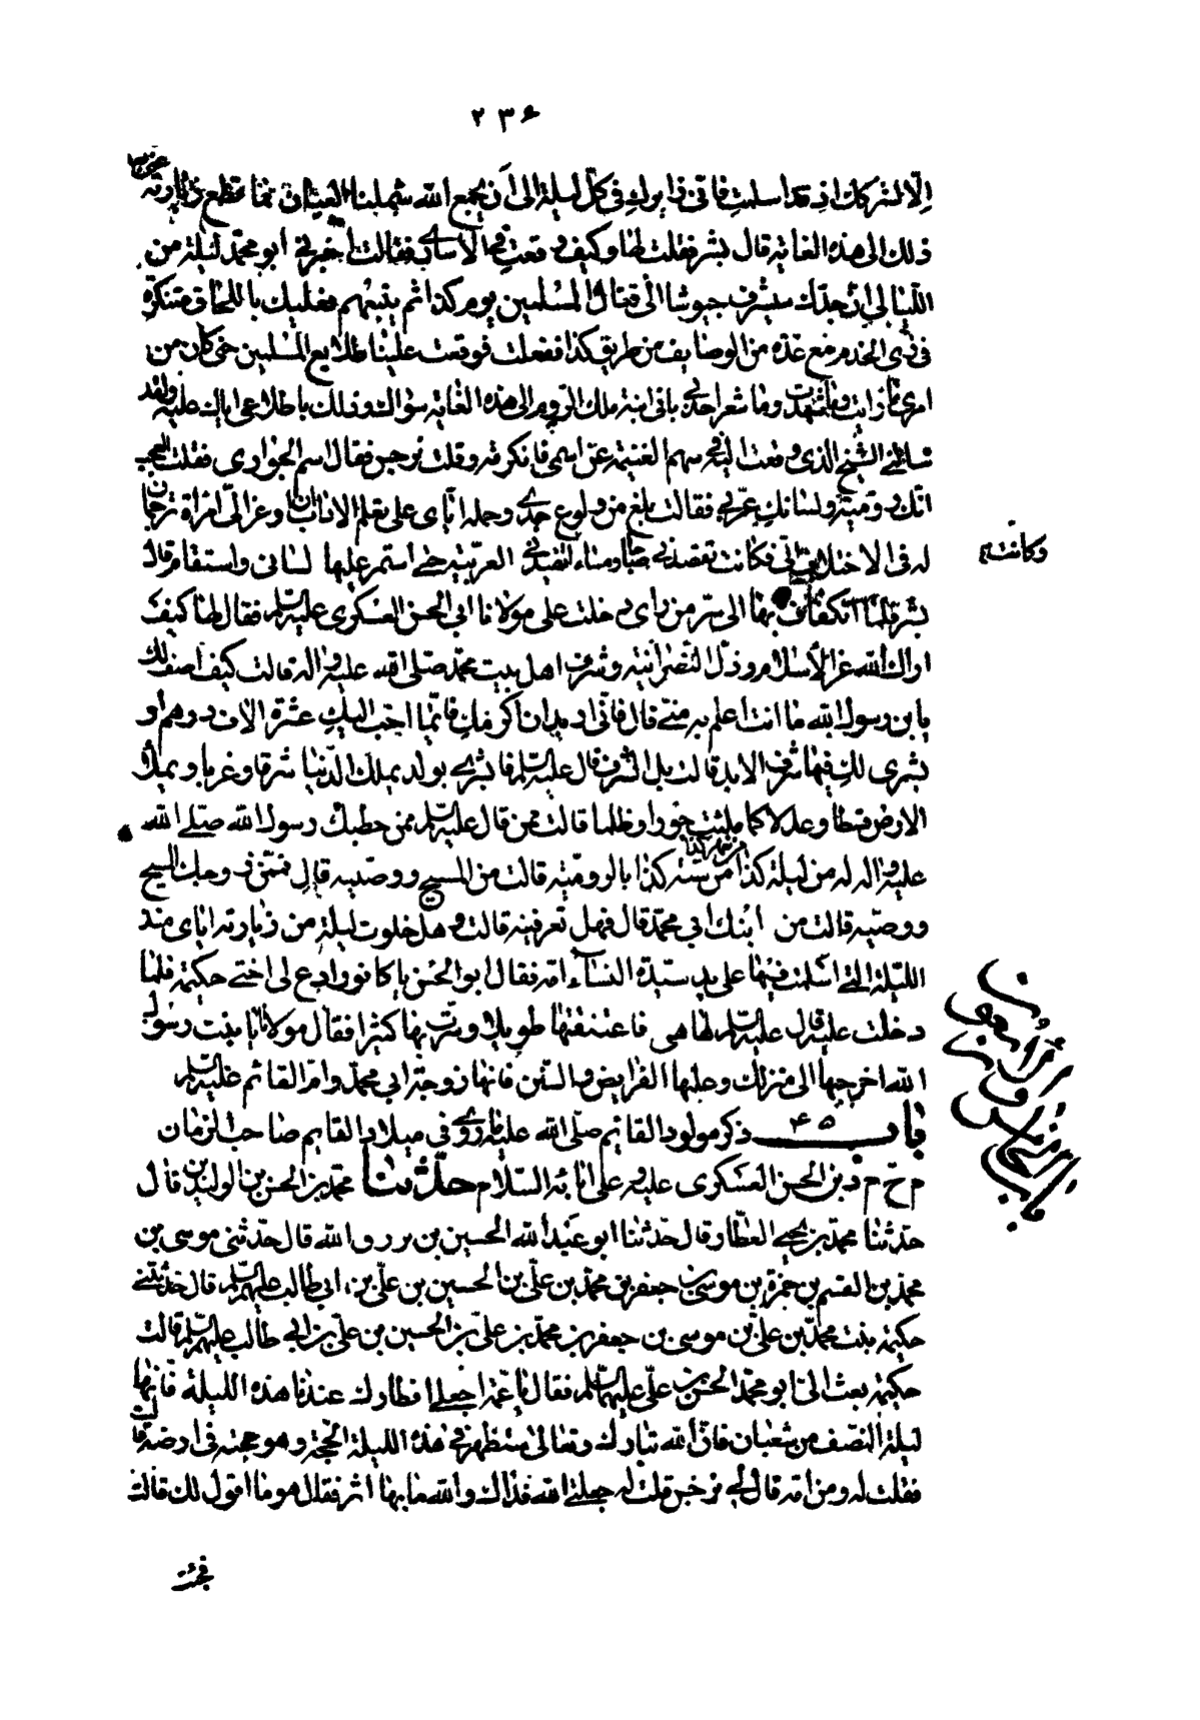 ۲۳۶
إلّا لشركك اذ قد اسلمت فانّى زايرك فى كلّ ليلة الى أن يجمع الله شملنا فى العيان فما قطع عنّى زيارته
ذلك الى هذه الغاية قال بشر فقلت لها وكيف وقعت فى الاسارى فقالت اخبرنى ابو محمّد ليلة من
الليالى انّ جدّك سيشرف جيوشا الى قتال المسلمين يوم كذا ثم يتبعهم فعليك باللحاق متنكرة
فى زى الخدم مع عدّة من الوصايف من طريق كذا ففعلت فوقعت علينا طلايع المسلمين حتى كان من
امرى ما رايت وما شهدت وما شعر احد بى بانى ابنة ملك الروم الى هذه الغاية سواك وذلك باطلاعى اياك عليه ولقد
سالنى الشيخ الذى وقعت اليه فى سهم الغنيمة عن اسمى فانكرته وقلت نرجس فقال اسم الجوارى فقلت العجب
انّك روميّة ولسانك عربى فقالت بلغ من ولوع جدّى وحمله ايّاى على تعلم الاداب ان اوعز الىّ امراة ترجمان
له فى الاختلاف الىّ فكانت تقصدنى صباحا ومساء وتفيدنى العربيّة حتى استمر عليها لسانى واستقام قال
وكانت
بشر فلمّا انكفات بها الى سرّ من راى دخلت على مولانا ابى الحسن العسكرى عليه السلم فقال لها كيف
اراك الله عزّ الاسلام وذلّ النصرانيّة وشرف اهل بيت محمّد صلى الله عليه واله قالت كيف اصف لك
يا بن رسول الله ما انت اعلم به منّى قال فانّى اريد ان اكرمك فايّما احبّ اليك عشرة الاف درهم او
بشرى لك فيها شرف الابد قالت بل الشرف قال عليه السلم فابشرى بولد يملك الدّنيا شرقا وغربا ويملا
الارض قسطا وعدلا كما ملئت جورا وظلما قالت ممن قال عليه السلم ممن خطبك رسول الله صلى الله
عليه واله له من ليلة كذا من شهر كذا من سنة كذا بالروميّة قالت من المسيح ووصيّه قال فممّن زوجك المسيح
ووصيّه قالت من ابنك ابى محمّد قال فهل تعرفينه قالت وهل خلوت ليلة من زيارته ايّاى منذ
الليلة التى اسلمت فيها على يد سيّدة النساء امّه فقال ابو الحسن يا كافور ادع لى اختى حكيمة فلمّا
دخلت عليه قال عليه السلم لها ها هى فاعتنقتها طويلا وسرّت بها كثيرا فقال مولانا يا بنت رسول
الله اخرجيها الى منزلك وعلّميها الفرايض والسنن فانّها زوجة ابى محمّد وامّ القائم عليه السلم
باب ۴۵ ذكر مولود القايم صلّى الله عليه ما روى فى ميلاد القايم صاحب الزمان
م ح م د بن الحسن العسكرى عليه وعلى ابائه السلام حدّثنا محمّد بن الحسن بن الوليد قال
حدّثنا محمّد بن يحيى العطّار قال حدّثنا ابو عبد الله الحسين بن رزق الله قال حدّثنى موسى بن
محمد بن القسم بن حمزة بن موسى بن جعفر بن محمّد بن علىّ بن الحسين بن علىّ بن ابى طالب عليهم السلم قال حدّثتنى
حكيمة بنت محمّد بن علىّ بن موسى بن جعفر بن محمّد بن علىّ بن الحسين بن علىّ بن ابى طالب عليهم السلم قالت
حكيمة بعث الىّ ابو محمّد الحسن بن علىّ عليهما السلم فقال يا عمّة اجعلى افطارك عندنا هذه الليلة فانّها
ليلة النصف من شعبان فانّ الله تبارك وتعالى سيظهر فى هذه الليلة الحجّة وهو حجّته فى ارضه قالت
فقلت له ومن امّه قال لى نرجس قلت له جعلنى الله فداك والله ما بها اثر فقال هو ما اقول لك قالت
فجئت